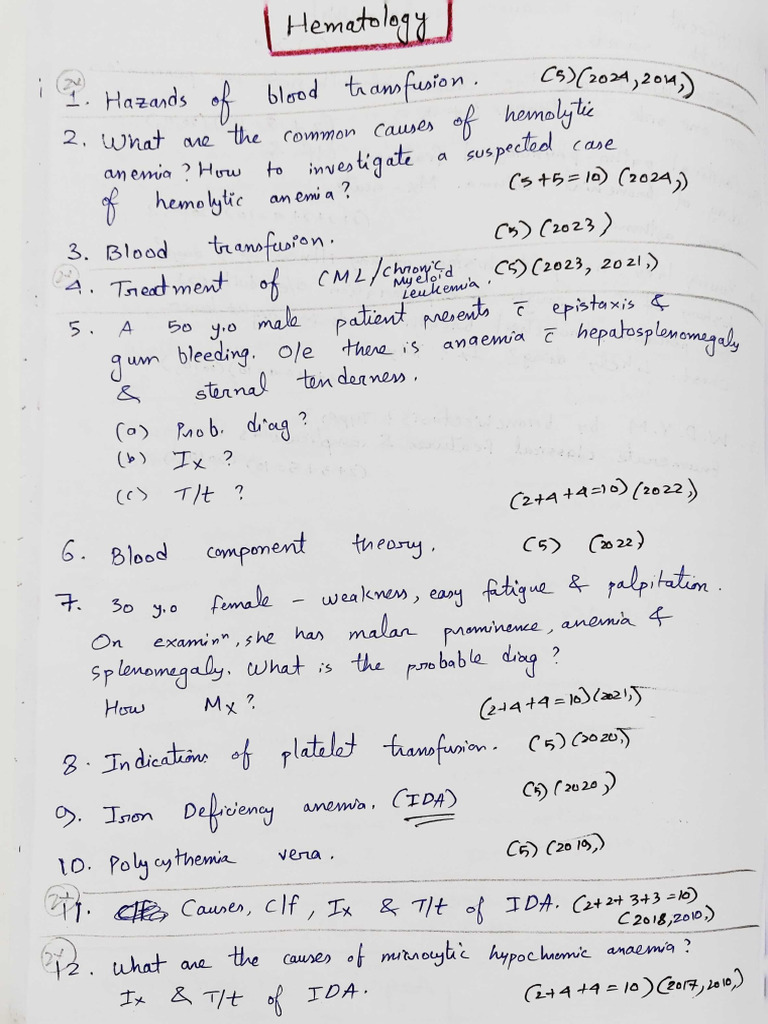 Hematology
2x
1. Hazards of blood transfusion. (5) (2024, 2014,)
2. What are the common causes of hemolytic
anemia? How to investigate a suspected case
of hemolytic anemia? (5+5=10) (2024,)
3. Blood transfusion. (5) (2023)
2x
4. Treatment of CML/Chronic Myeloid Leukemia. (5) (2023, 2021,)
5. A 50 y.o male patient presents c̄ epistaxis &
gum bleeding. O/e there is anaemia c̄ hepatosplenomegaly
& sternal tenderness.
(a) Prob. diag?
(b) Ix ?
(c) T/t ? (2+4+4=10) (2022,)
6. Blood component theory. (5) (2022)
7. 30 y.o female – weakness, easy fatigue & palpitation.
On examinⁿ, she has malar prominence, anemia &
splenomegaly. What is the probable diag?
How Mx? (2+4+4=10) (2021,)
8. Indications of platelet transfusion. (5) (2020,)
9. Iron Deficiency anemia. (IDA) (5) (2020,)
10. Polycythemia vera. (5) (2019,)
2x
11. Causes, C/f, Ix & T/t of IDA. (2+2+3+3=10)
(2018, 2010,)
2x
12. What are the causes of microcytic hypochromic anaemia?
Ix & T/t of IDA. (2+4+4=10) (2017, 2010,)